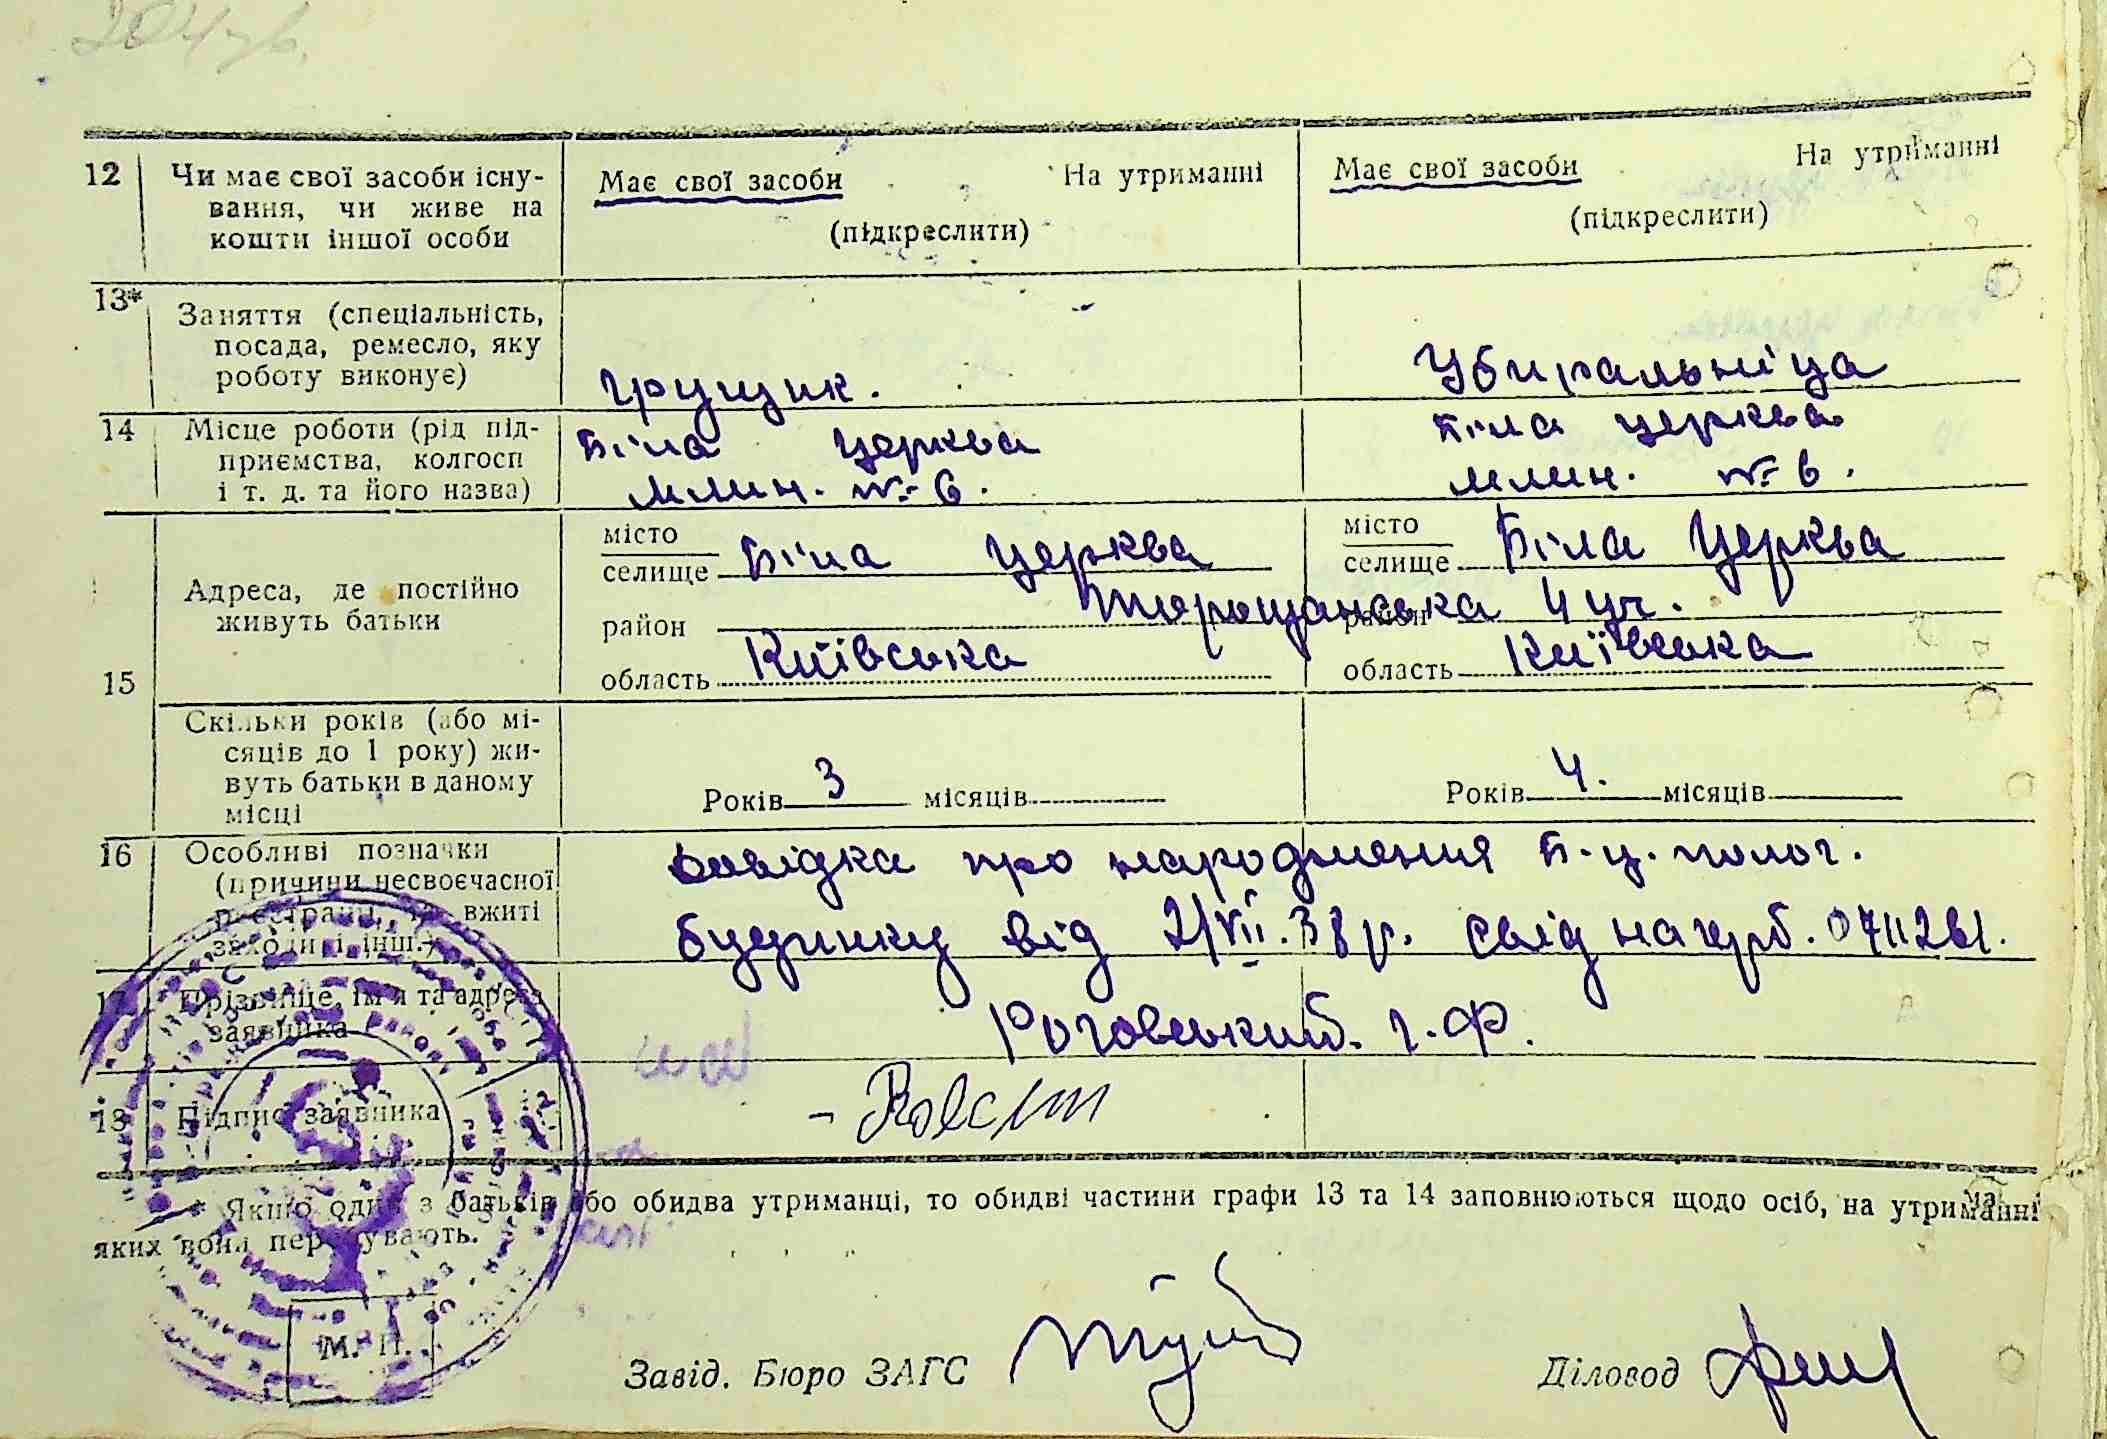 12 Чи має свої засоби існу- Має свої засоби На утриманні Має свої засоби На утриманні
вання, чи живе на
кошти іншої особи (підкреслити) (підкреслити)
13* Заняття (спеціальність,
посада, ремесло, яку
роботу виконує) Грущик. Убиральніца
14 Місце роботи (рід під- Біла церква Біла церква
приємства, колгосп
і т. д. та його назва) млин. № 6. млин. № 6.
місто місто
селище Біла Церква селище Біла Церква
15 Адреса, де постійно
живуть батьки
район район 4 уч.
область Київська область Київська
Скільки років (або мі-
сяців до 1 року) жи-
вуть батьки в даному
місці Років 3 місяців Років 4. місяців
16 Особливі позначки
(причини несвоєчасної
реєстрації, та вжиті
заходи і інш.)
довідка про народження Б.Ц. полог.
будинку від 2/VII.38 р. свід на герб. 0711261.
17 Прізвище, ім'я та адреса
заявника Роговський. Г.Ф.
18 Підпис заявника
* Якщо один з батьків або обидва утриманці, то обидві частини графи 13 та 14 заповнюються щодо осіб, на утриманні
яких вони перебувають.
М. П.
Завід. Бюро ЗАГС Діловод